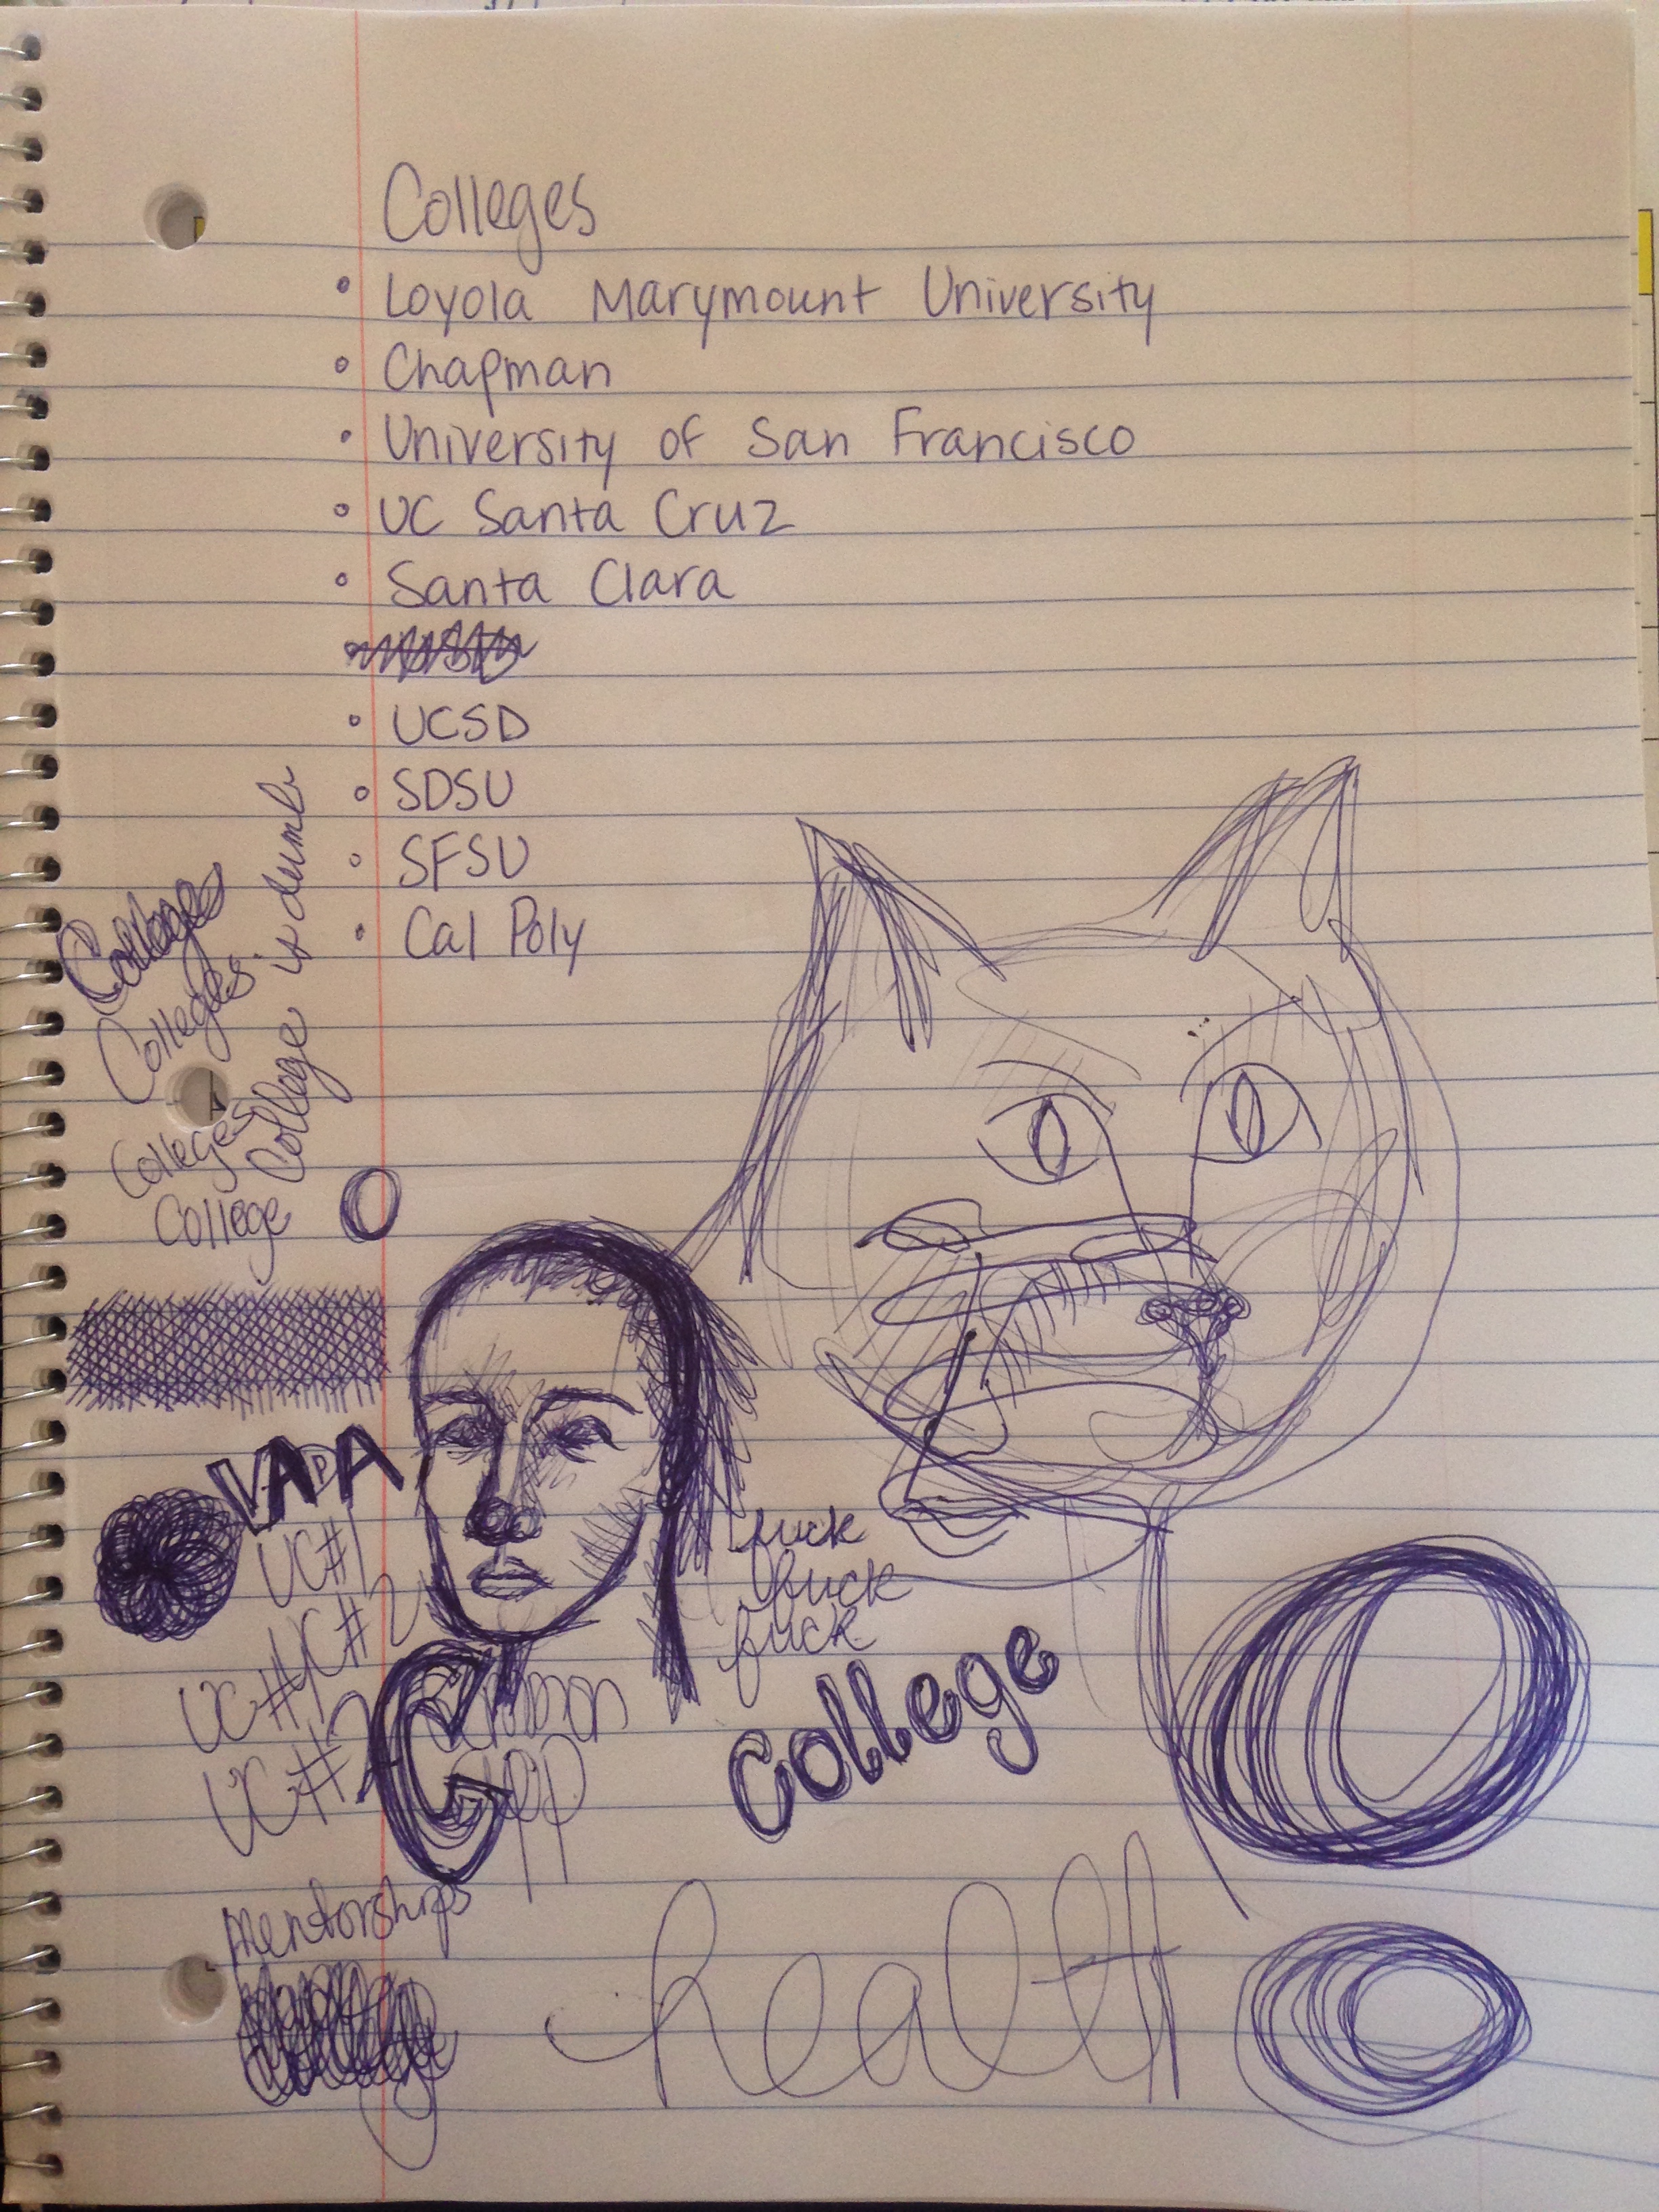 Colleges
• Loyola Marymount University
• Chapman
• University of San Francisco
• UC Santa Cruz
• Santa Clara
• UCSD
• SDSU
• SFSU
• Cal Poly
Colleges
Colleges.
College is dumb
Colleges
College
UC#1
UC#2
UC#1
UC#2
Common
app
fuck
fuck
fuck
College
mentorships
health